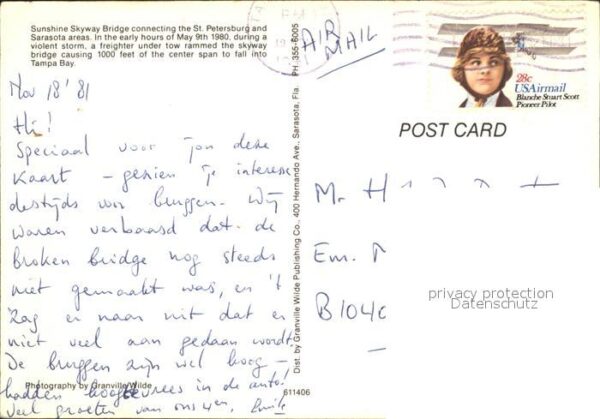 Sunshine Skyway Bridge connecting the St. Petersburg and
Sarasota areas. In the early hours of May 9th 1980, during a
violent storm, a freighter under tow rammed the skyway
bridge causing 1000 feet of the center span to fall into
Tampa Bay.
Nov 18 '81
Hi!
Speciaal voor jou deze
Kaart – gezien je interesse
destijds voor bruggen. Wij
waren verbaasd dat de
Broken bridge nog steeds
niet gemaakt was, en 't
zag er naar uit dat er
niet veel aan gedaan wordt.
De bruggen zijn wel hoog –
hadden hoogtevrees in de auto!
Veel groeten van ons
Photography by Granville Wilde
611406
Dist. by Granville Wilde Publishing Co., 400 Hernando Ave., Sarasota, Fla. PH. 355-6005
AIR
MAIL
28c
USAirmail
Blanche Stuart Scott
Pioneer Pilot
POST CARD
M. H
Em.
B1040
privacy protection
Datenschutz